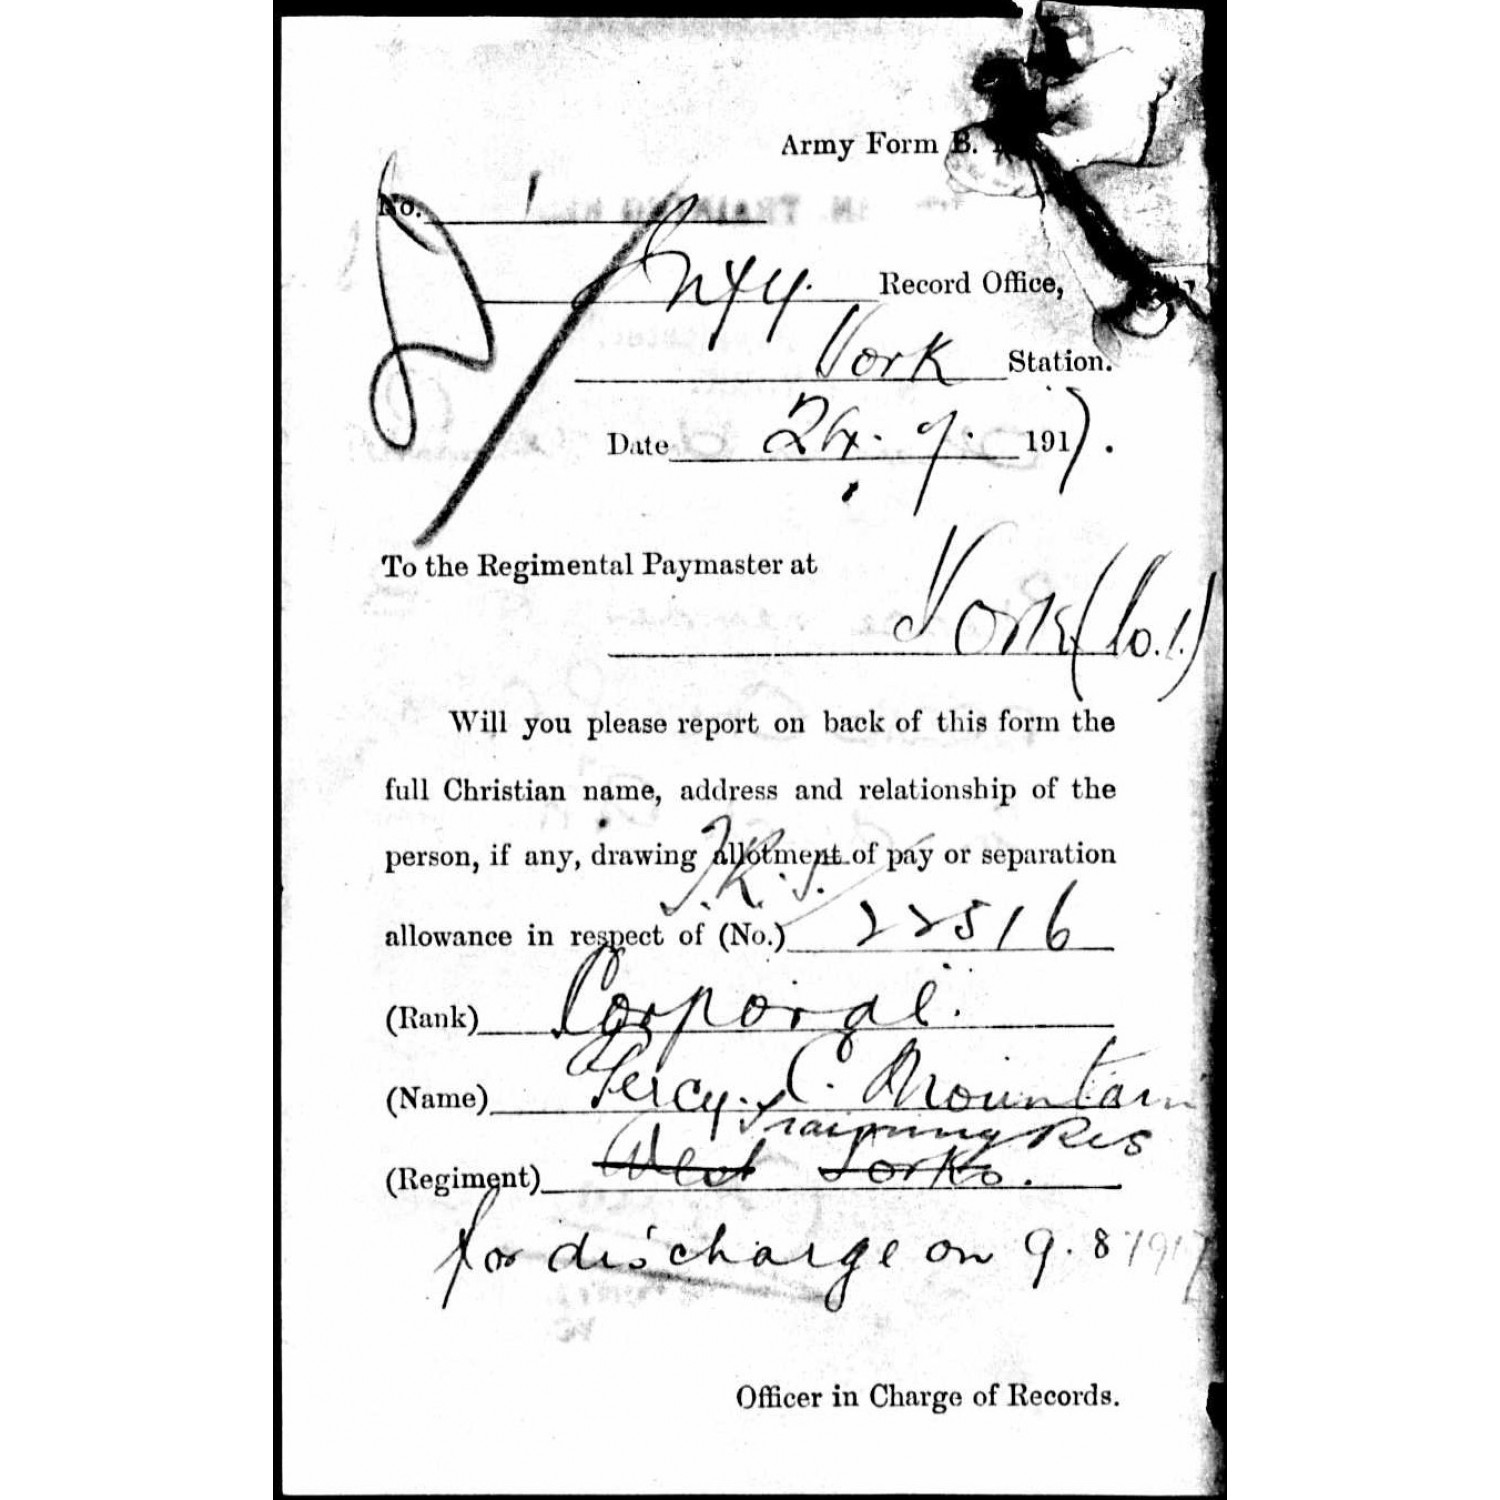 Army Form B.
No.
Infy. Record Office,
York Station.
Date 24. 7. 1917.
To the Regimental Paymaster at
York (No. 1)
Will you please report on back of this form the
full Christian name, address and relationship of the
person, if any, drawing allotment of pay or separation
allowance in respect of (No.) 22516
(Rank) Corporal.
(Name) Percy. C. Mountain
Training Res
(Regiment) West Yorks.
for discharge on 9. 8 1917
Officer in Charge of Records.